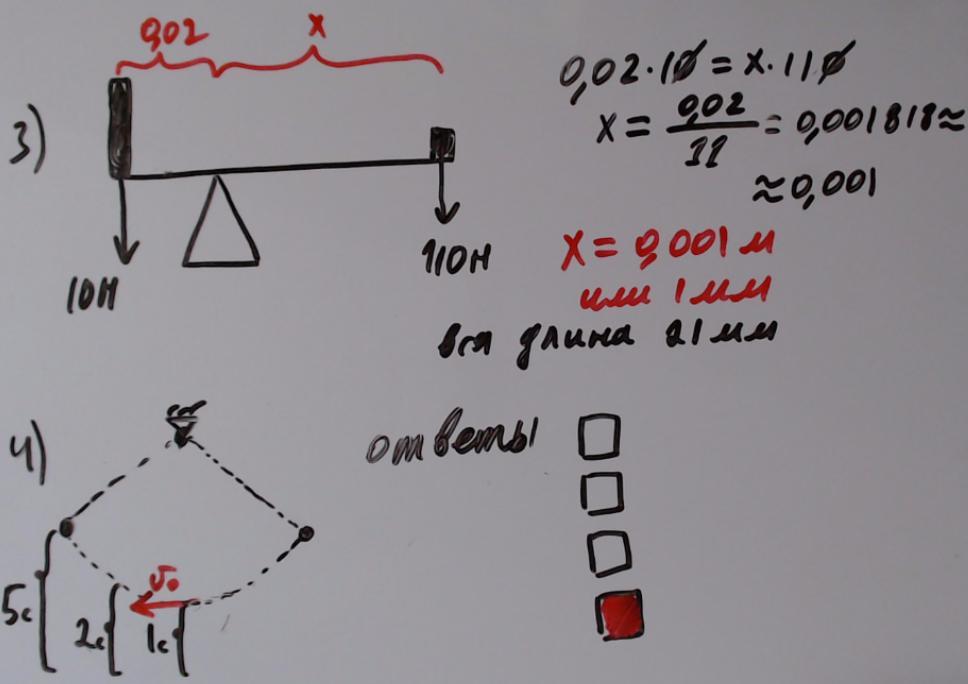 0,02 x
3)
10Н
110Н
0,02·10=x·110
x=0,02/11=0,001818≈
≈0,001
x=0,001м
или 1мм
вся длина 21мм
4)
ответы
v₀
5с
2с
1с